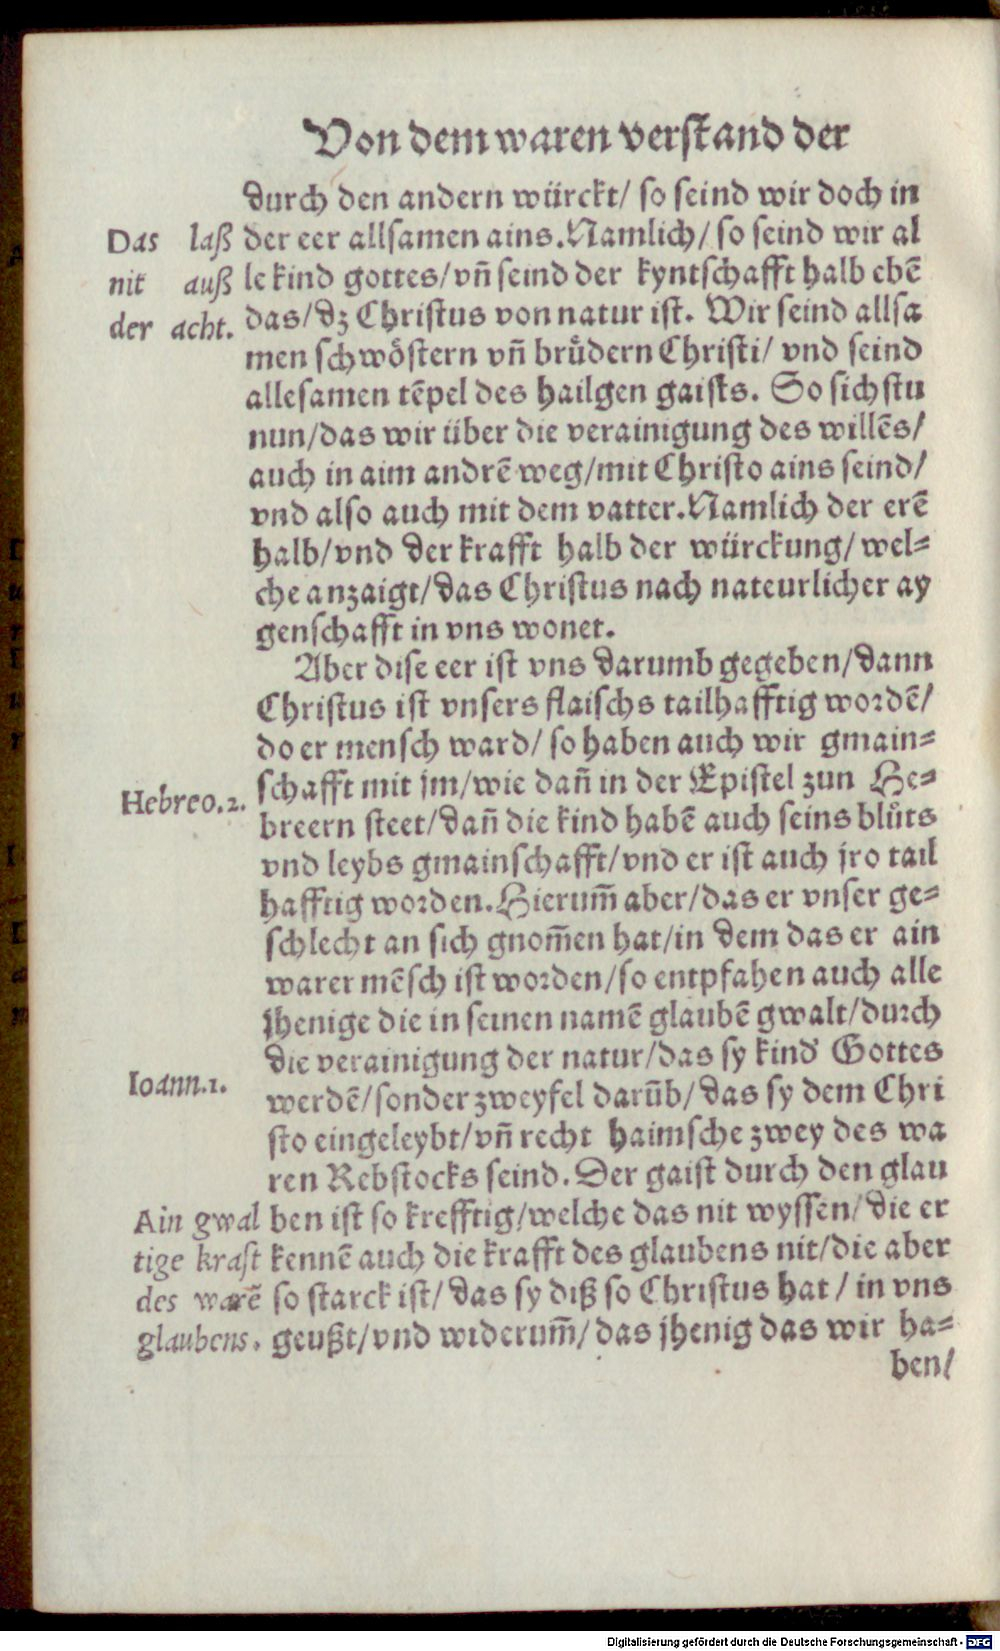 Von dem waren verstand der
durch den andern würckt/ so seind wir doch in
der eer allsamen ains. Namlich/ so seind wir al
le kind gottes/ vñ seind der kyntschafft halb ebẽ
das/ dz Christus von natur ist. Wir seind allsa
men schwoͤstern vñ bruͤdern Christi/ vnd seind
allesamen tẽpel des hailgen gaists. So sichstu
nun/ das wir über die verainigung des willẽs/
auch in aim andrẽ weg/ mit Christo ains seind/
vnd also auch mit dem vatter. Namlich der erẽ
halb/ vnd der krafft halb der würckung/ wel-
che anzaigt/ das Christus nach nateurlicher ay
genschafft in vns wonet.
Das laß
nit auß
der acht.
Aber dise eer ist vns darumb gegeben/ dann
Christus ist vnsers flaischs tailhafftig wordẽ/
do er mensch ward/ so haben auch wir gmain-
schafft mit jm/ wie dañ in der Epistel zun He-
breern steet/ dañ die kind habẽ auch seins bluͦts
vnd leybs gmainschafft/ vnd er ist auch jro tail
hafftig worden. Hierum̃ aber/ das er vnser ge-
schlecht an sich gnom̃en hat/ in dem das er ain
warer mẽsch ist worden/ so entpfahen auch alle
jhenige die in seinen namẽ glaubẽ gwalt/ durch
die verainigung der natur/ das sy kind Gottes
werdẽ/ sonder zweyfel darũb/ das sy dem Chri
sto eingeleybt/ vñ recht haimsche zwey des wa
ren Rebstocks seind. Der gaist durch den glau
ben ist so krefftig/ welche das nit wyssen/ die er
kennẽ auch die krafft des glaubens nit/ die aber
so starck ist/ das sy diß so Christus hat/ in vns
geußt/ vnd widerum̃/ das jhenig das wir ha-
ben/
Hebreo.2.
Ioann.1.
Ain gwal
tige kraft
des warẽ
glaubens.
Digitalisierung gefördert durch die Deutsche Forschungsgemeinschaft - DFG